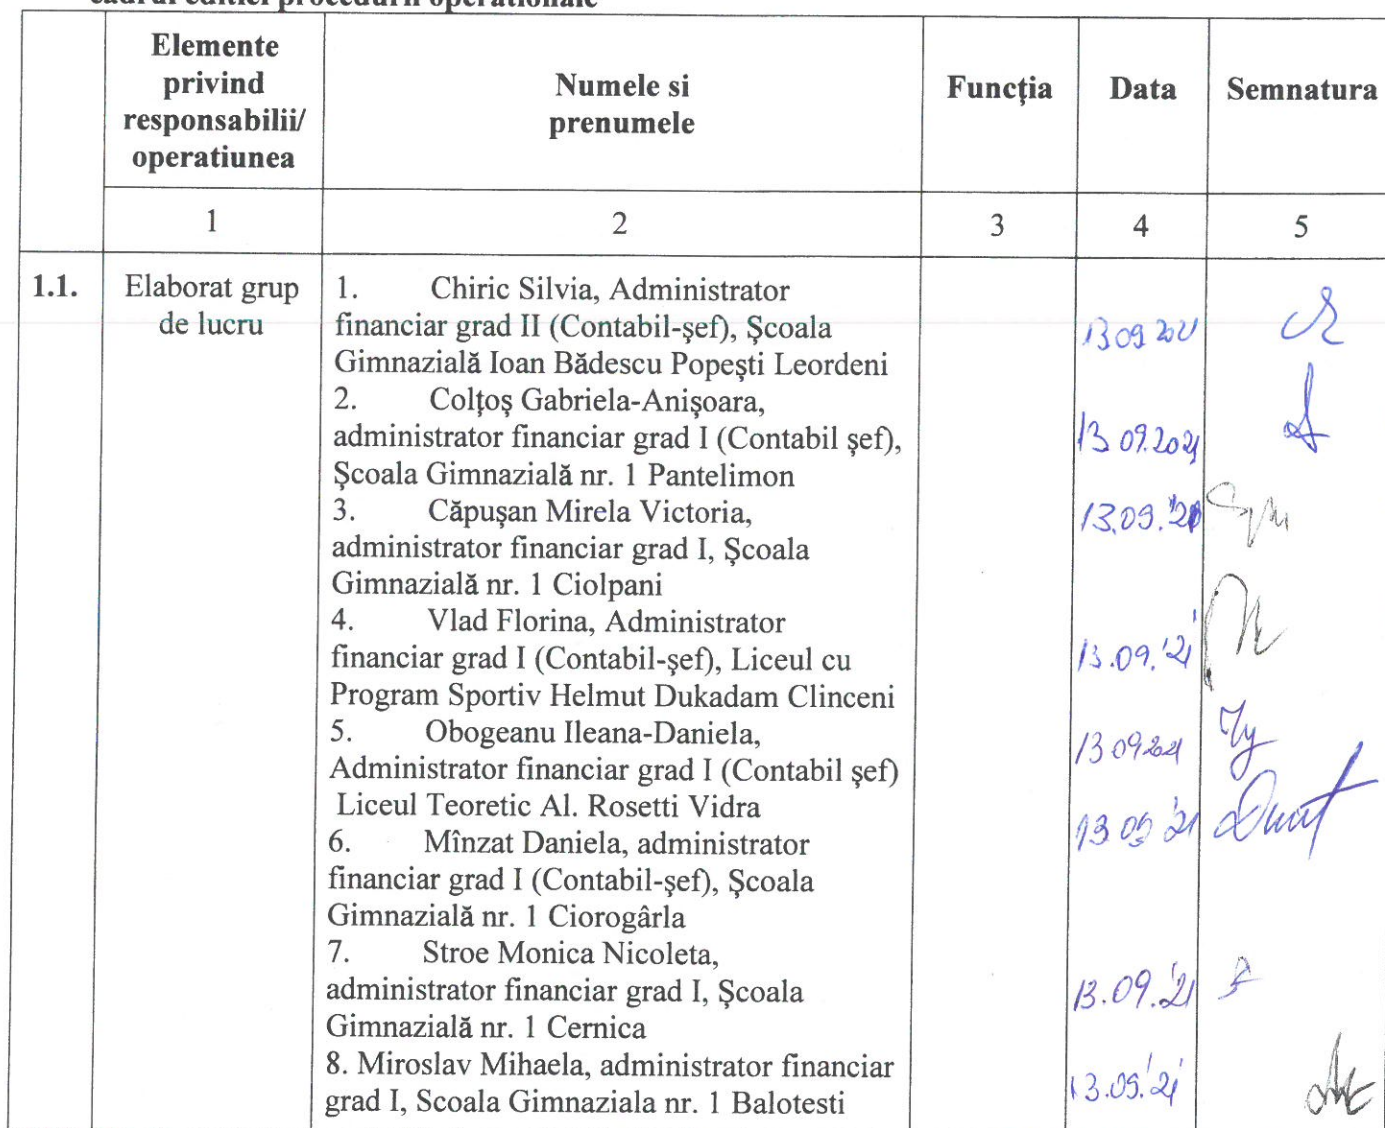 cadrul editiei procedurii operationale
Elemente
privind
responsabilii/
operatiunea
Numele si
prenumele
Funcția
Data
Semnatura
1
2
3
4
5
1.1.
Elaborat grup
de lucru
1. Chiric Silvia, Administrator
financiar grad II (Contabil-şef), Şcoala
Gimnazială Ioan Bădescu Popeşti Leordeni
13 09 2021
2. Colţoş Gabriela-Anişoara,
administrator financiar grad I (Contabil şef),
Şcoala Gimnazială nr. 1 Pantelimon
13.09.2021
3. Căpuşan Mirela Victoria,
administrator financiar grad I, Şcoala
Gimnazială nr. 1 Ciolpani
13.09.'21
4. Vlad Florina, Administrator
financiar grad I (Contabil-şef), Liceul cu
Program Sportiv Helmut Dukadam Clinceni
13.09.'21
5. Obogeanu Ileana-Daniela,
Administrator financiar grad I (Contabil şef)
Liceul Teoretic Al. Rosetti Vidra
13 09 2021
6. Mînzat Daniela, administrator
financiar grad I (Contabil-şef), Şcoala
Gimnazială nr. 1 Ciorogârla
13 09 '21
7. Stroe Monica Nicoleta,
administrator financiar grad I, Şcoala
Gimnazială nr. 1 Cernica
13.09.'21
8. Miroslav Mihaela, administrator financiar
grad I, Scoala Gimnaziala nr. 1 Balotesti
13.09.'21